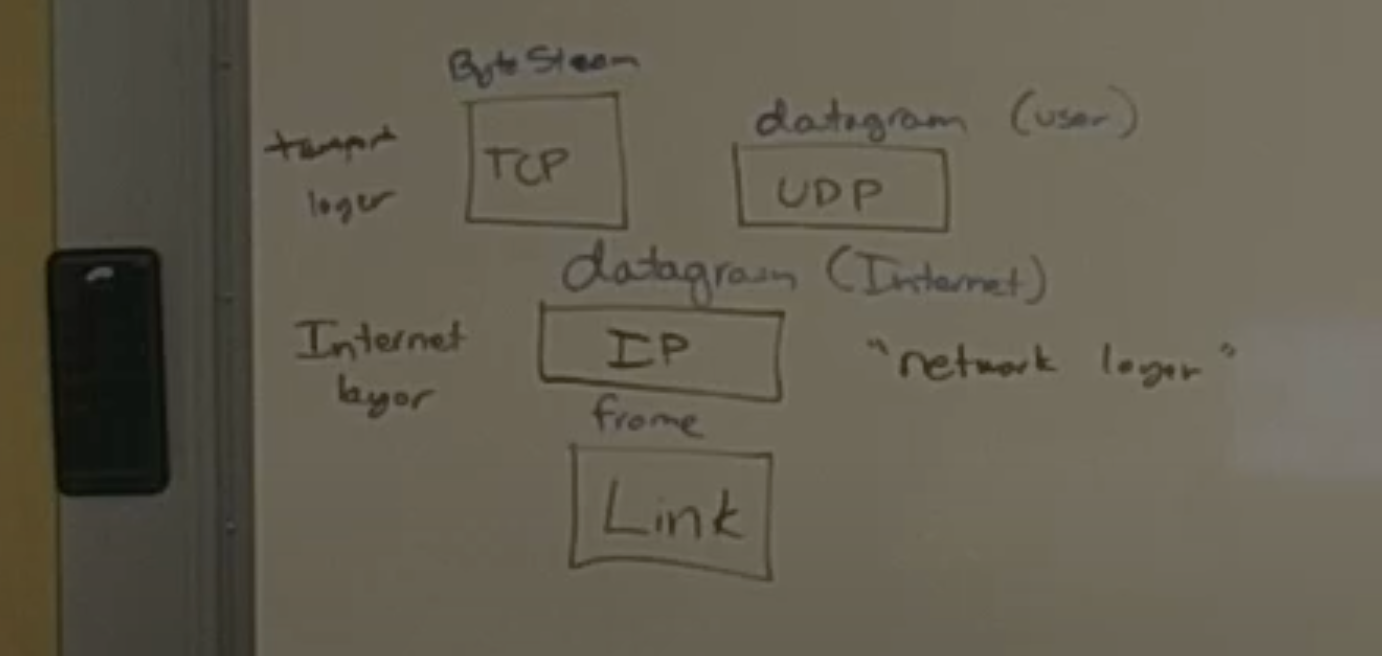 Byte Stream
TCP
transport
layer
datagram (user)
UDP
datagram (Internet)
Internet
layer
IP
"network layer"
frame
Link